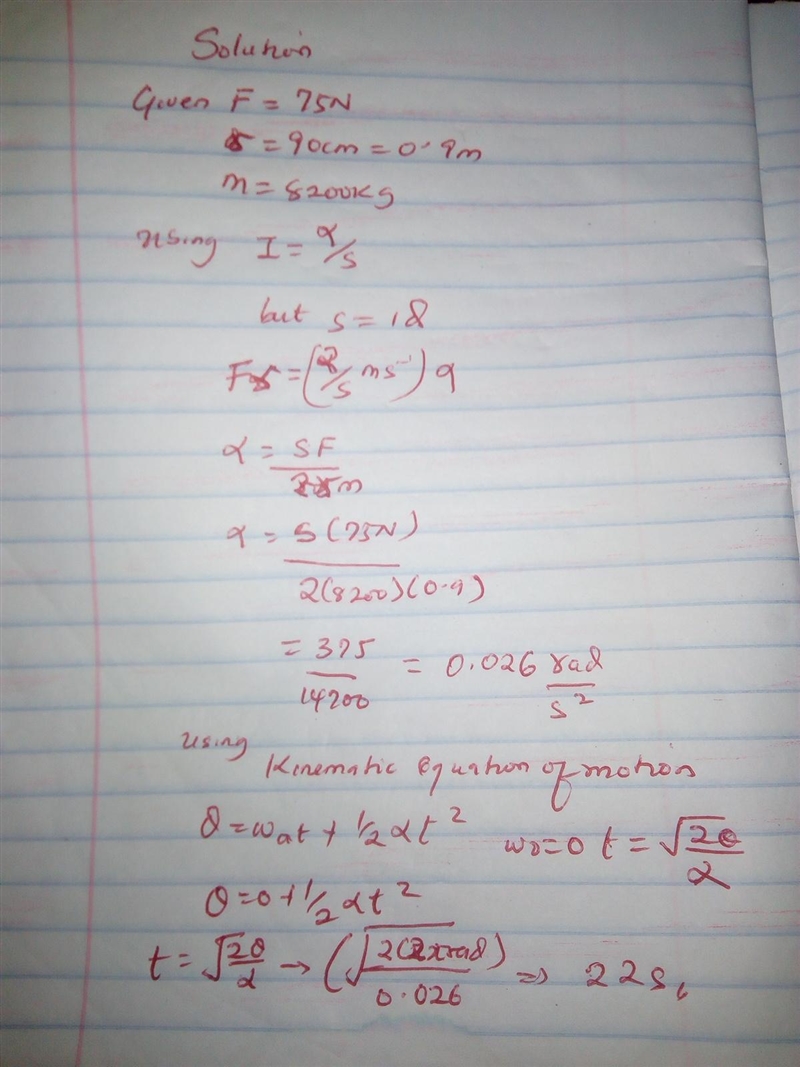 Solution
Given F = 75N
r = 90cm = 0.9m
m = 8200kg
Using I = 2/5
but s = 18
Fr = (2/5 ms⁻¹) α
α = 5F / 2rm
α = 5(75N) / 2(8200)(0.9)
= 375 / 14200 = 0.026 rad / s²
Using
Kinematic Equation of motion
θ = wₒt + 1/2 αt² w₀=0 t = √2θ / α
θ = 0 + 1/2 αt²
t = √2θ/α → (√2(2π rad) / 0.026 ⇒ 22s,